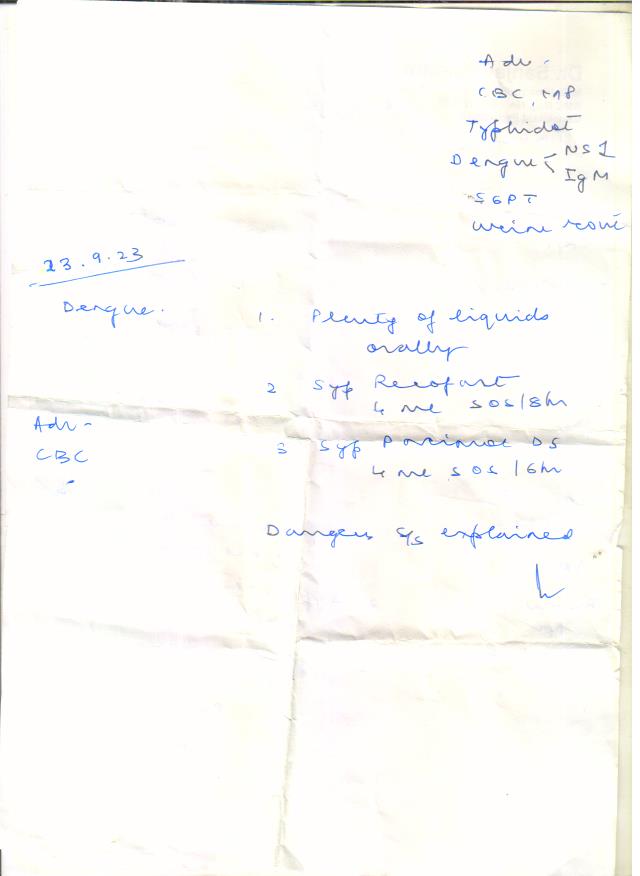 Adv -
CBC, MP
Typhidot
Dengue < NS1
IgM
SGPT
Urine rout
23.9.23
Dengue.
1. Plenty of liquids
orally
2 Syp
4 ml sos/8hr
Adv -
CBC
3 Syp DS
4 ml sos/6hr
Danger s/s explained